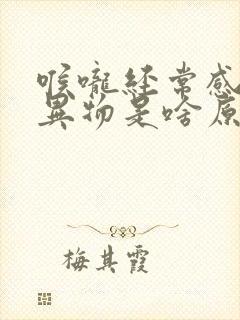 喉咙经常感
异物是啥原
梅其霞